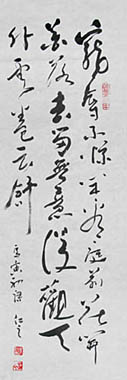 寵辱不惊看庭前花開
花落去留無意漫觀天
外雲卷云舒
庚寅初